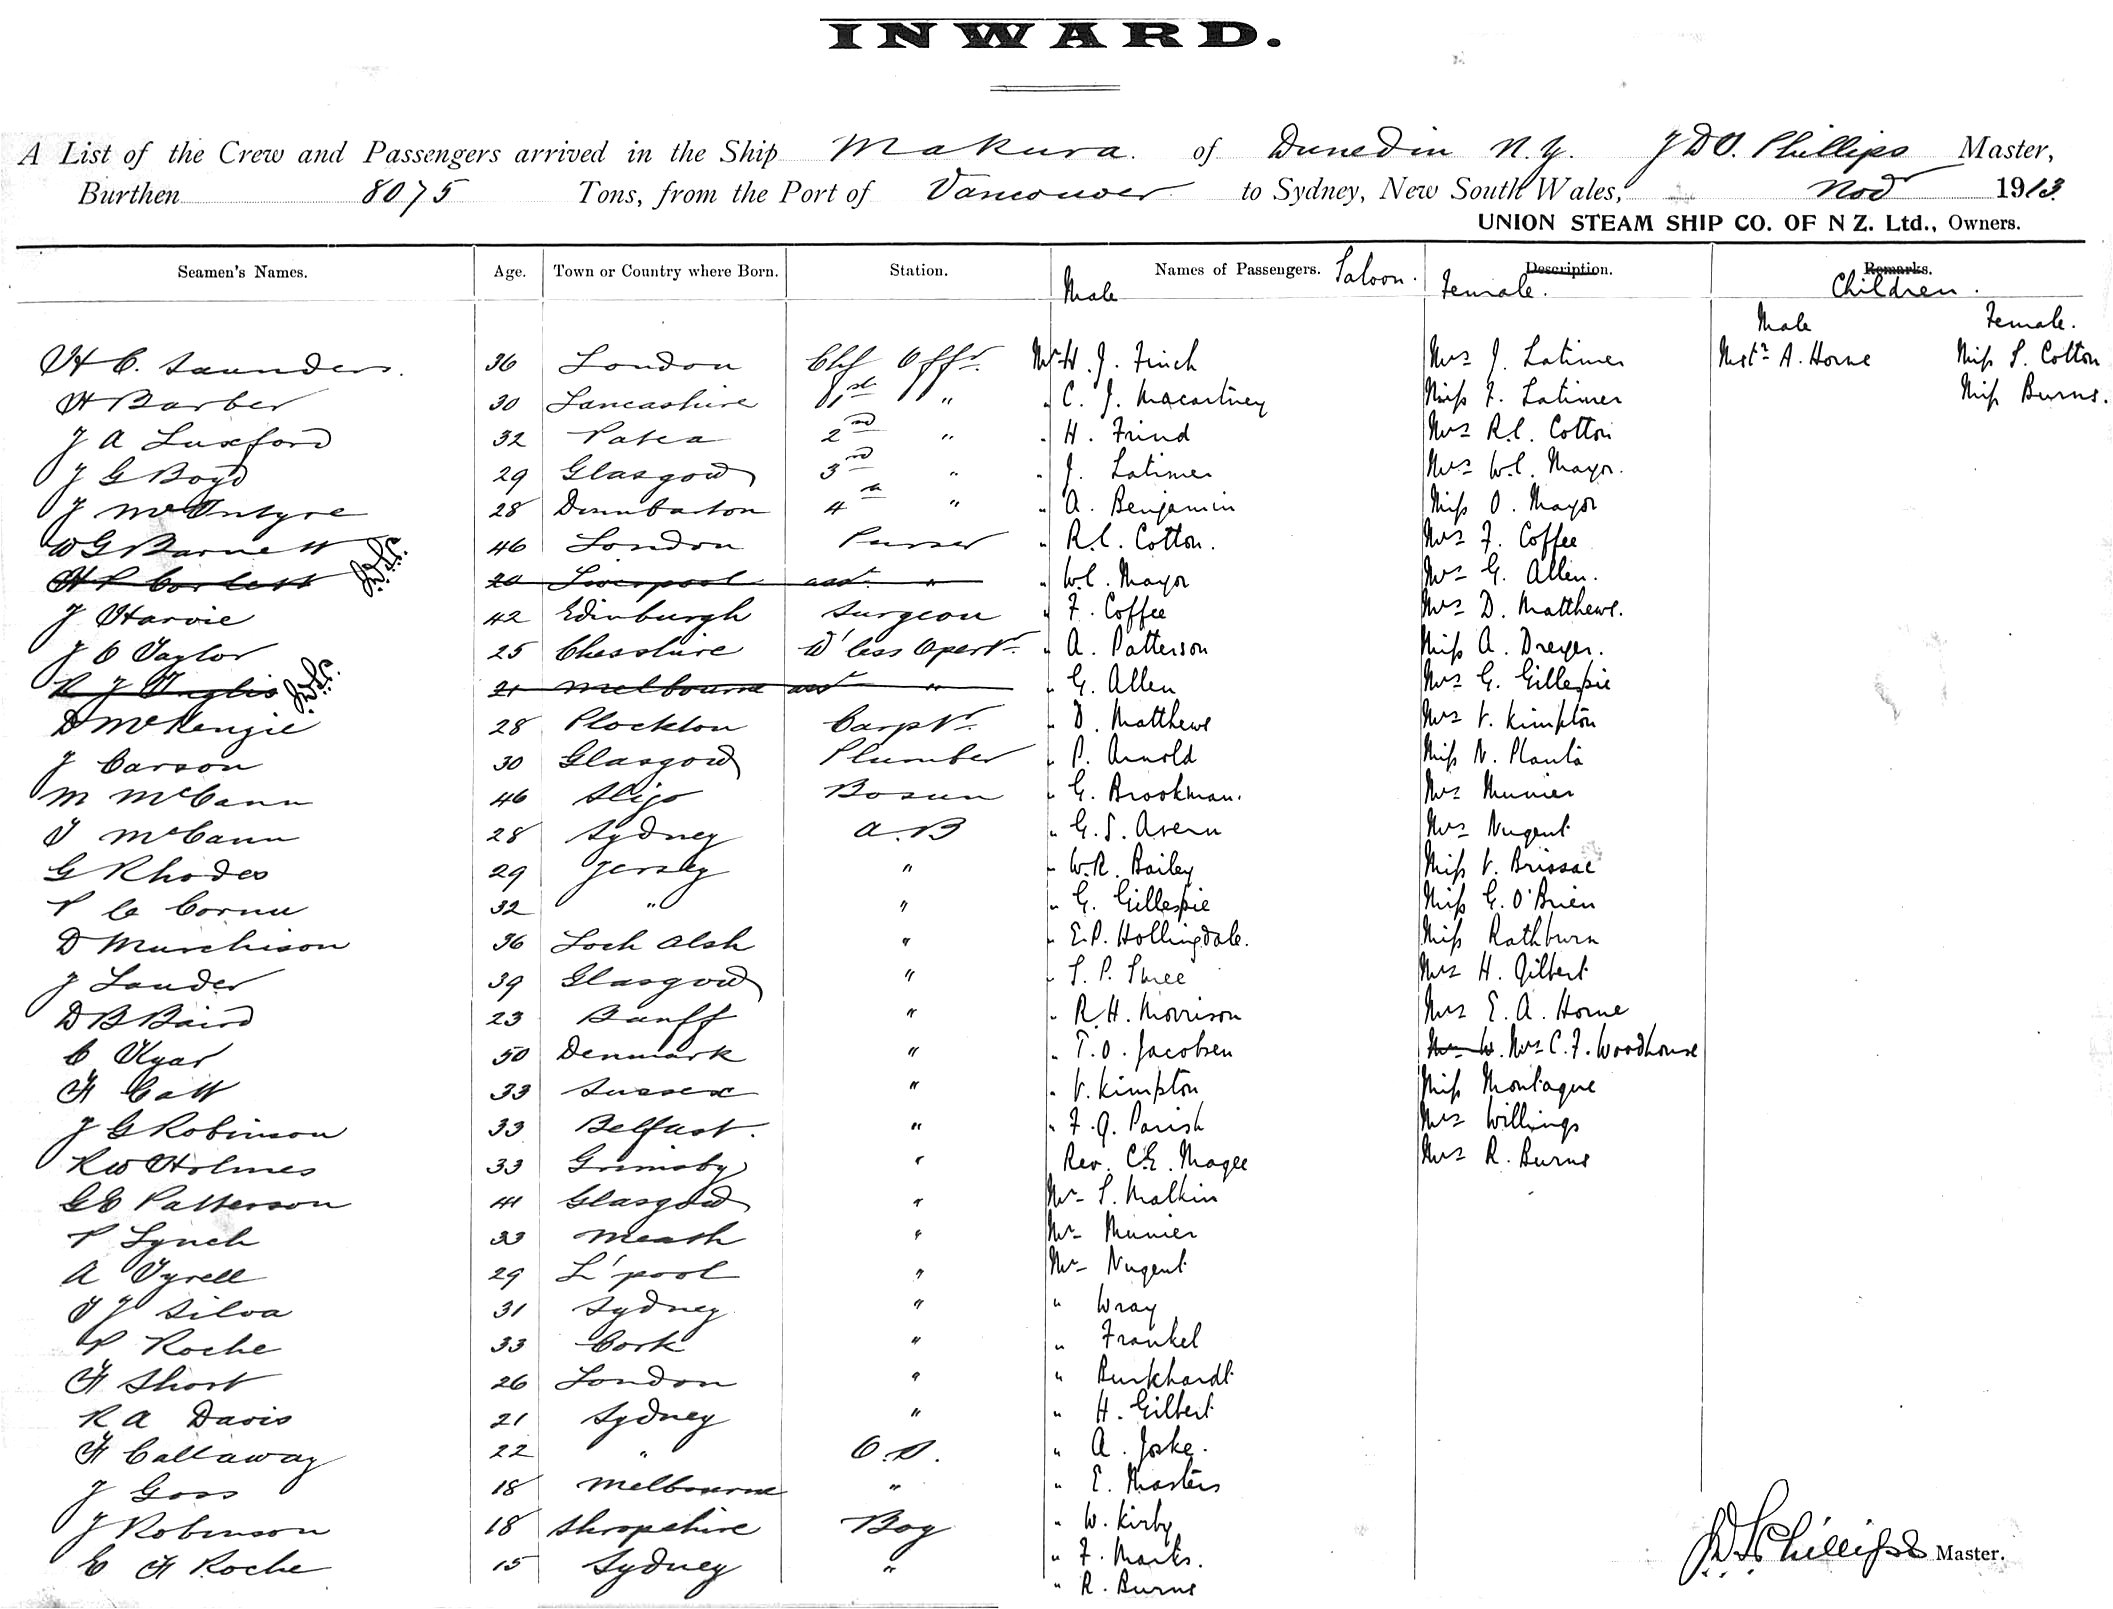 INWARD.
A List of the Crew and Passengers arrived in the Ship Makura. of Dunedin N.Z. J D S. Phillips Master,
Burthen 8075 Tons, from the Port of Vancouver to Sydney, New South Wales, Novr 1913
UNION STEAM SHIP CO. OF N Z. Ltd., Owners.
Seamen's Names. Age. Town or Country where Born. Station. Names of Passengers. Saloon. Description. Remarks.
Male Female. Children.
Male Female.
H C. Saunders. 36 London Chf Offr. Mr H. J. Finch Mrs J. Latimer Mstr A. Horne Miss S. Cotton
H Barber 30 Lancashire 1st " " C. J. Macartney Miss F. Latimer Miss Burns.
J A Luxford 32 Patea 2nd " " H. Frind Mrs R.C. Cotton
J G Boyd 29 Glasgow 3rd " " J. Latimer Mrs W.C. Mayor.
J McIntyre 28 Dumbarton 4th " " A. Benjamin Miss O. Mayor
W G Barnett 46 London Purser " R.C. Cotton. Mrs F. Coffee
H P Corlett 20 Liverpool asst. " " W.C. Mayor Mrs G. Allen.
J Harvie 42 Edinburgh Surgeon " F. Coffee Mrs D. Matthews.
J C Taylor 25 Chesshire W'less Opertr. " A. Patterson Miss A. Dreyer.
R J Inglis 21 Melbourne asst " " G. Allen Mrs G. Gillespie
D McKenzie 28 Plockton Carptr. " D. Matthews Mrs V. Kimpton
J Carson 30 Glasgow Plumber " P. Arnold Miss N. Planta
M McCann 46 Sligo Bosun " G. Brookman. Mrs Munier
T McCann 28 Sydney A.B " G.S. Avern Mrs Nugent
G Rhodes 29 Jersey " " W.R. Bailey Miss V. Brissac
P Le Cornu 32 " " " G. Gillespie Miss G. O'Brien
D Murchison 36 Loch Alsh " " E.P. Hollingdale. Miss Rathburn
J Lauder 39 Glasgow " " S. P. Mrs H. Gilbert
D B Baird 23 Banff " " R.H. Morrison Mrs E. A. Horne
C 50 Denmark " " T.O. Jacobsen Mrs W. Mrs C. F. Woodhouse
H Catt 33 Sussex " " V. Kimpton Miss Montague
J G Robinson 33 Belfast. " " F.G. Parish Mrs Willings
R W Holmes 33 Grimsby " Rev. C.E. Magee Mrs R. Burns
G E Patterson 41 Glasgow " Mr S. Malkin
P Lynch 33 Meath " Mr Munier
A Tyrell 29 L'pool " Mr Nugent
T J Silva 31 Sydney " " Wray
P Roche 33 Cork " " Frankel
H Short 26 London " " Burkhardt
R A Davis 21 Sydney " " H. Gilbert
H Callaway 22 " O.S. " A. Joske.
J Goss 18 Melbourne " " E. Masters
J Robinson 18 Shropshire Boy " W. Kirby
E H Roche 15 Sydney " " F. Marks.
" R. Burns
J D S Phillips Master.